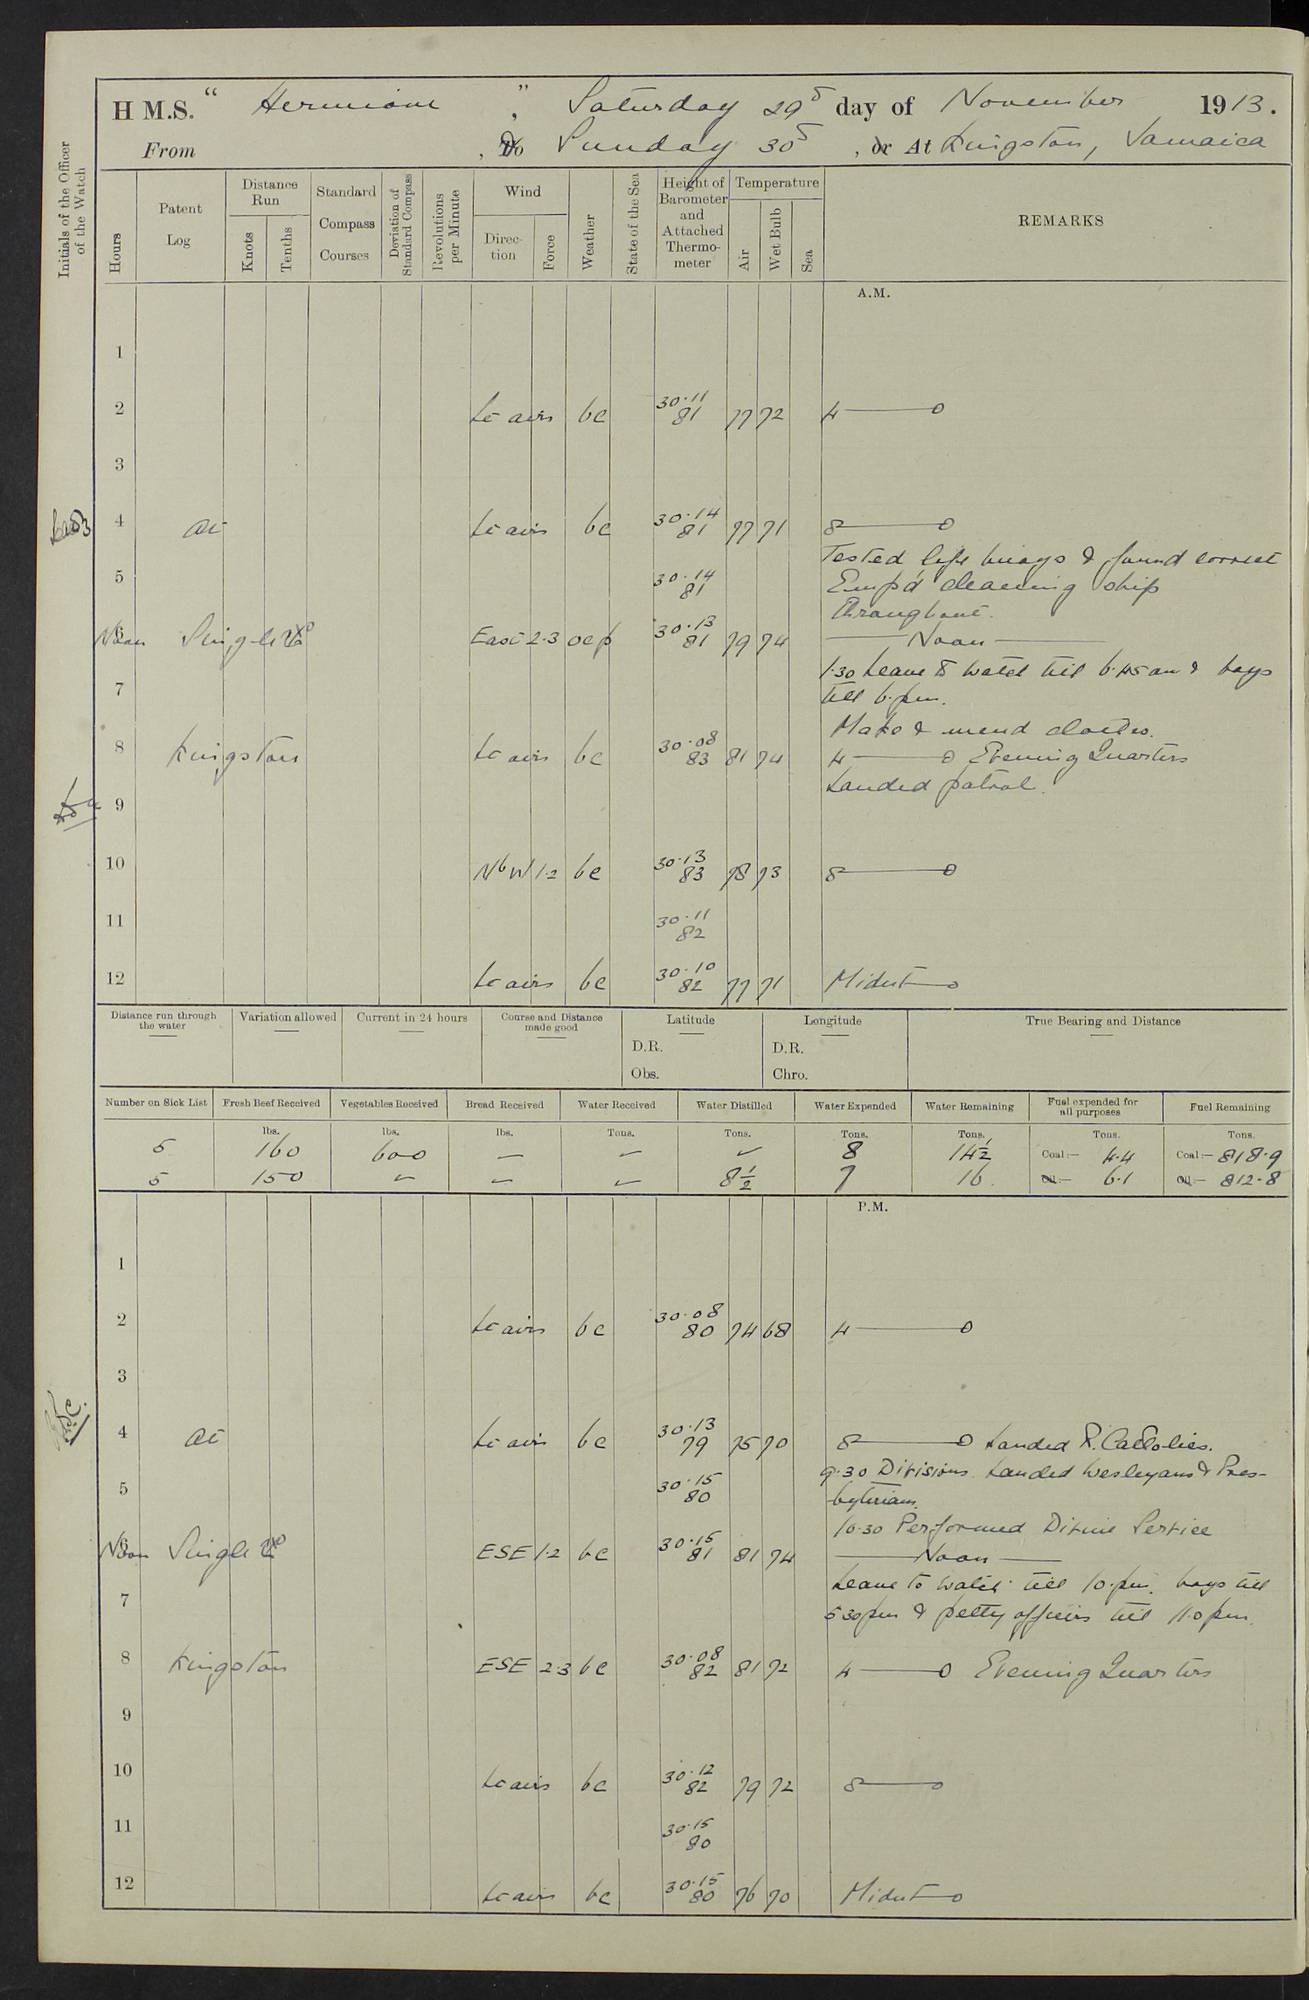 H M.S. "Hermione", Saturday 29th day of November 1913.
From , To Sunday 30th , or At Kingston, Jamaica
Initials of the Officer of the Watch
Hours
Patent Log
Distance Run
Knots
Tenths
Standard Compass Courses
Deviation of Standard Compass
Revolutions per Minute
Wind
Direction
Force
Weather
State of the Sea
Height of Barometer and Attached Thermometer
Temperature
Air
Wet Bulb
Sea
REMARKS
A.M.
1
2 Lt airs bc 30.11 81 77 72 4
3
4 At Lt airs bc 30.14 81 77 71 8
Tested life buoys & found correct
5 30.14 81 Emp'd cleaning ship
throughout.
Noon Single East 2.3 ocp 30.13 81 79 74 Noon
1.30 Leave to watch till 6.45 am & boys
7 till 6. pm.
Make & mend clothes.
8 Kingston Lt airs bc 30.08 83 81 74 4 Evening Quarters
Landed patrol.
9
10 N b W 1.2 bc 30.13 83 78 73 8
11 30.11 82
12 Lt airs bc 30.10 82 77 71 Midnt
Distance run through the water
Variation allowed
Current in 24 hours
Course and Distance made good
Latitude
D.R.
Obs.
Longitude
D.R.
Chro.
True Bearing and Distance
Number on Sick List Fresh Beef Received Vegetables Received Bread Received Water Received Water Distilled Water Expended Water Remaining Fuel expended for all purposes Fuel Remaining
lbs. lbs. lbs. Tons. Tons. Tons. Tons. Tons. Tons.
5 160 600 – – – 8 14½ Coal:– 4.4 Coal:– 818.9
5 150 – – – 8½ 7 16 Oil:– 6.1 Oil:– 812.8
P.M.
1
2 Lt airs bc 30.08 80 74 68 4
3
4 At Lt airs bc 30.13 79 75 70 8 Landed R. Catholics.
9.30 Divisions. Landed Wesleyans & Pres-
5 30.15 80 byterians.
10.30 Performed Divine Service
Noon Single ESE 1.2 bc 30.15 81 81 74 Noon
Leave to watch till 10. pm. boys till
7 5.30 pm & petty officers till 11.0 pm.
8 Kingston ESE 2.3 bc 30.08 82 81 72 4 Evening Quarters
9
10 Lt airs bc 30.12 82 79 72 8
11 30.15 80
12 Lt airs bc 30.15 80 76 70 Midnt